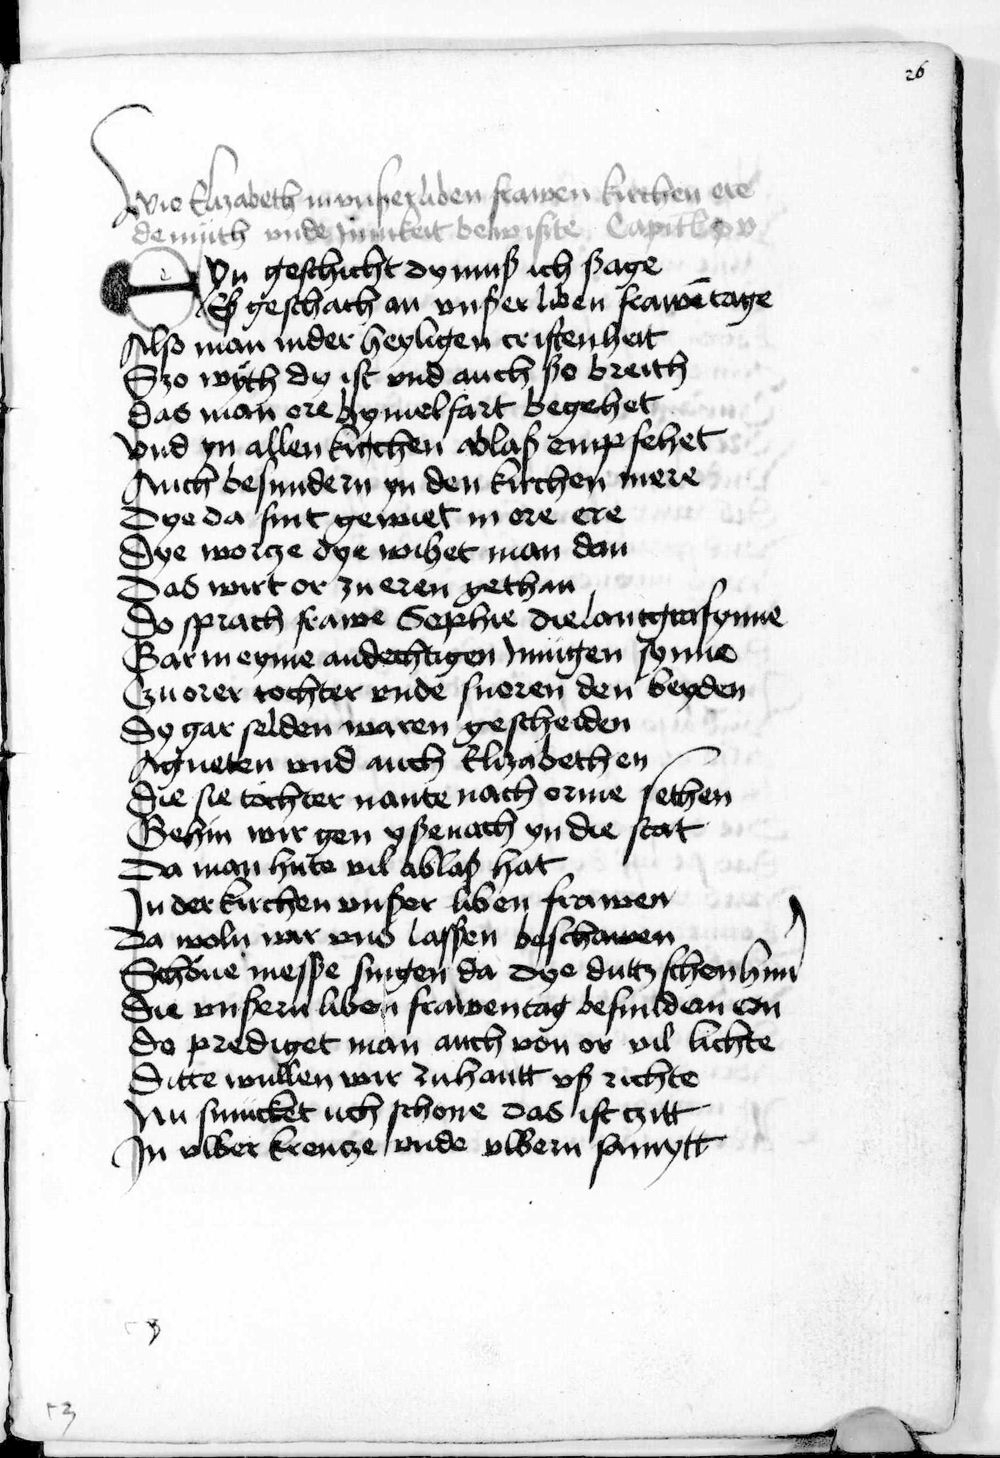 26
Wie Elizabeth in unßer liben frawen kirchen ere
demuth unde innikeit bewisite Capitl xv
Eyn geschicht dy muß ich ßage
Eß geschach an unßer liben frawē tage
Also man in der heyligen cristenheit
Szo wyth dy ist und auch ßo breith
Das man ore hymelfart begehet
Und yn allen kirchen ablaß empfehet
Auch besundern yn den kirchen mere
Dye da sint gewiet in ore ere
Dye worcze dye wihet man dan
Das wirt or zu eren gethan
Do sprach frawe Sophie die lantgrafynne
Gar in eyme andechtigen innigen synne
Czu orer tochter unde snoren den beyden
Dy gar selden waren gescheiden
Agneten und auch Elizabethen
Die sie tochter nante nach orme sethen
Gehin wir gen yßenach yn die stat
Da man hute vil ablaß hat
In der kirchen unßer liben frawen
Da woln wir uns lassen beschawen
Schone messe singen da dye dutzschen hern
Die unßern liben frawen tag besundern ern
Do prediget man auch von or vil lichte
Ditte wullen wir zu hantt uß richte
Nu smucket uch schone das ist czitt
In ulber krencze unde ulbern samytt